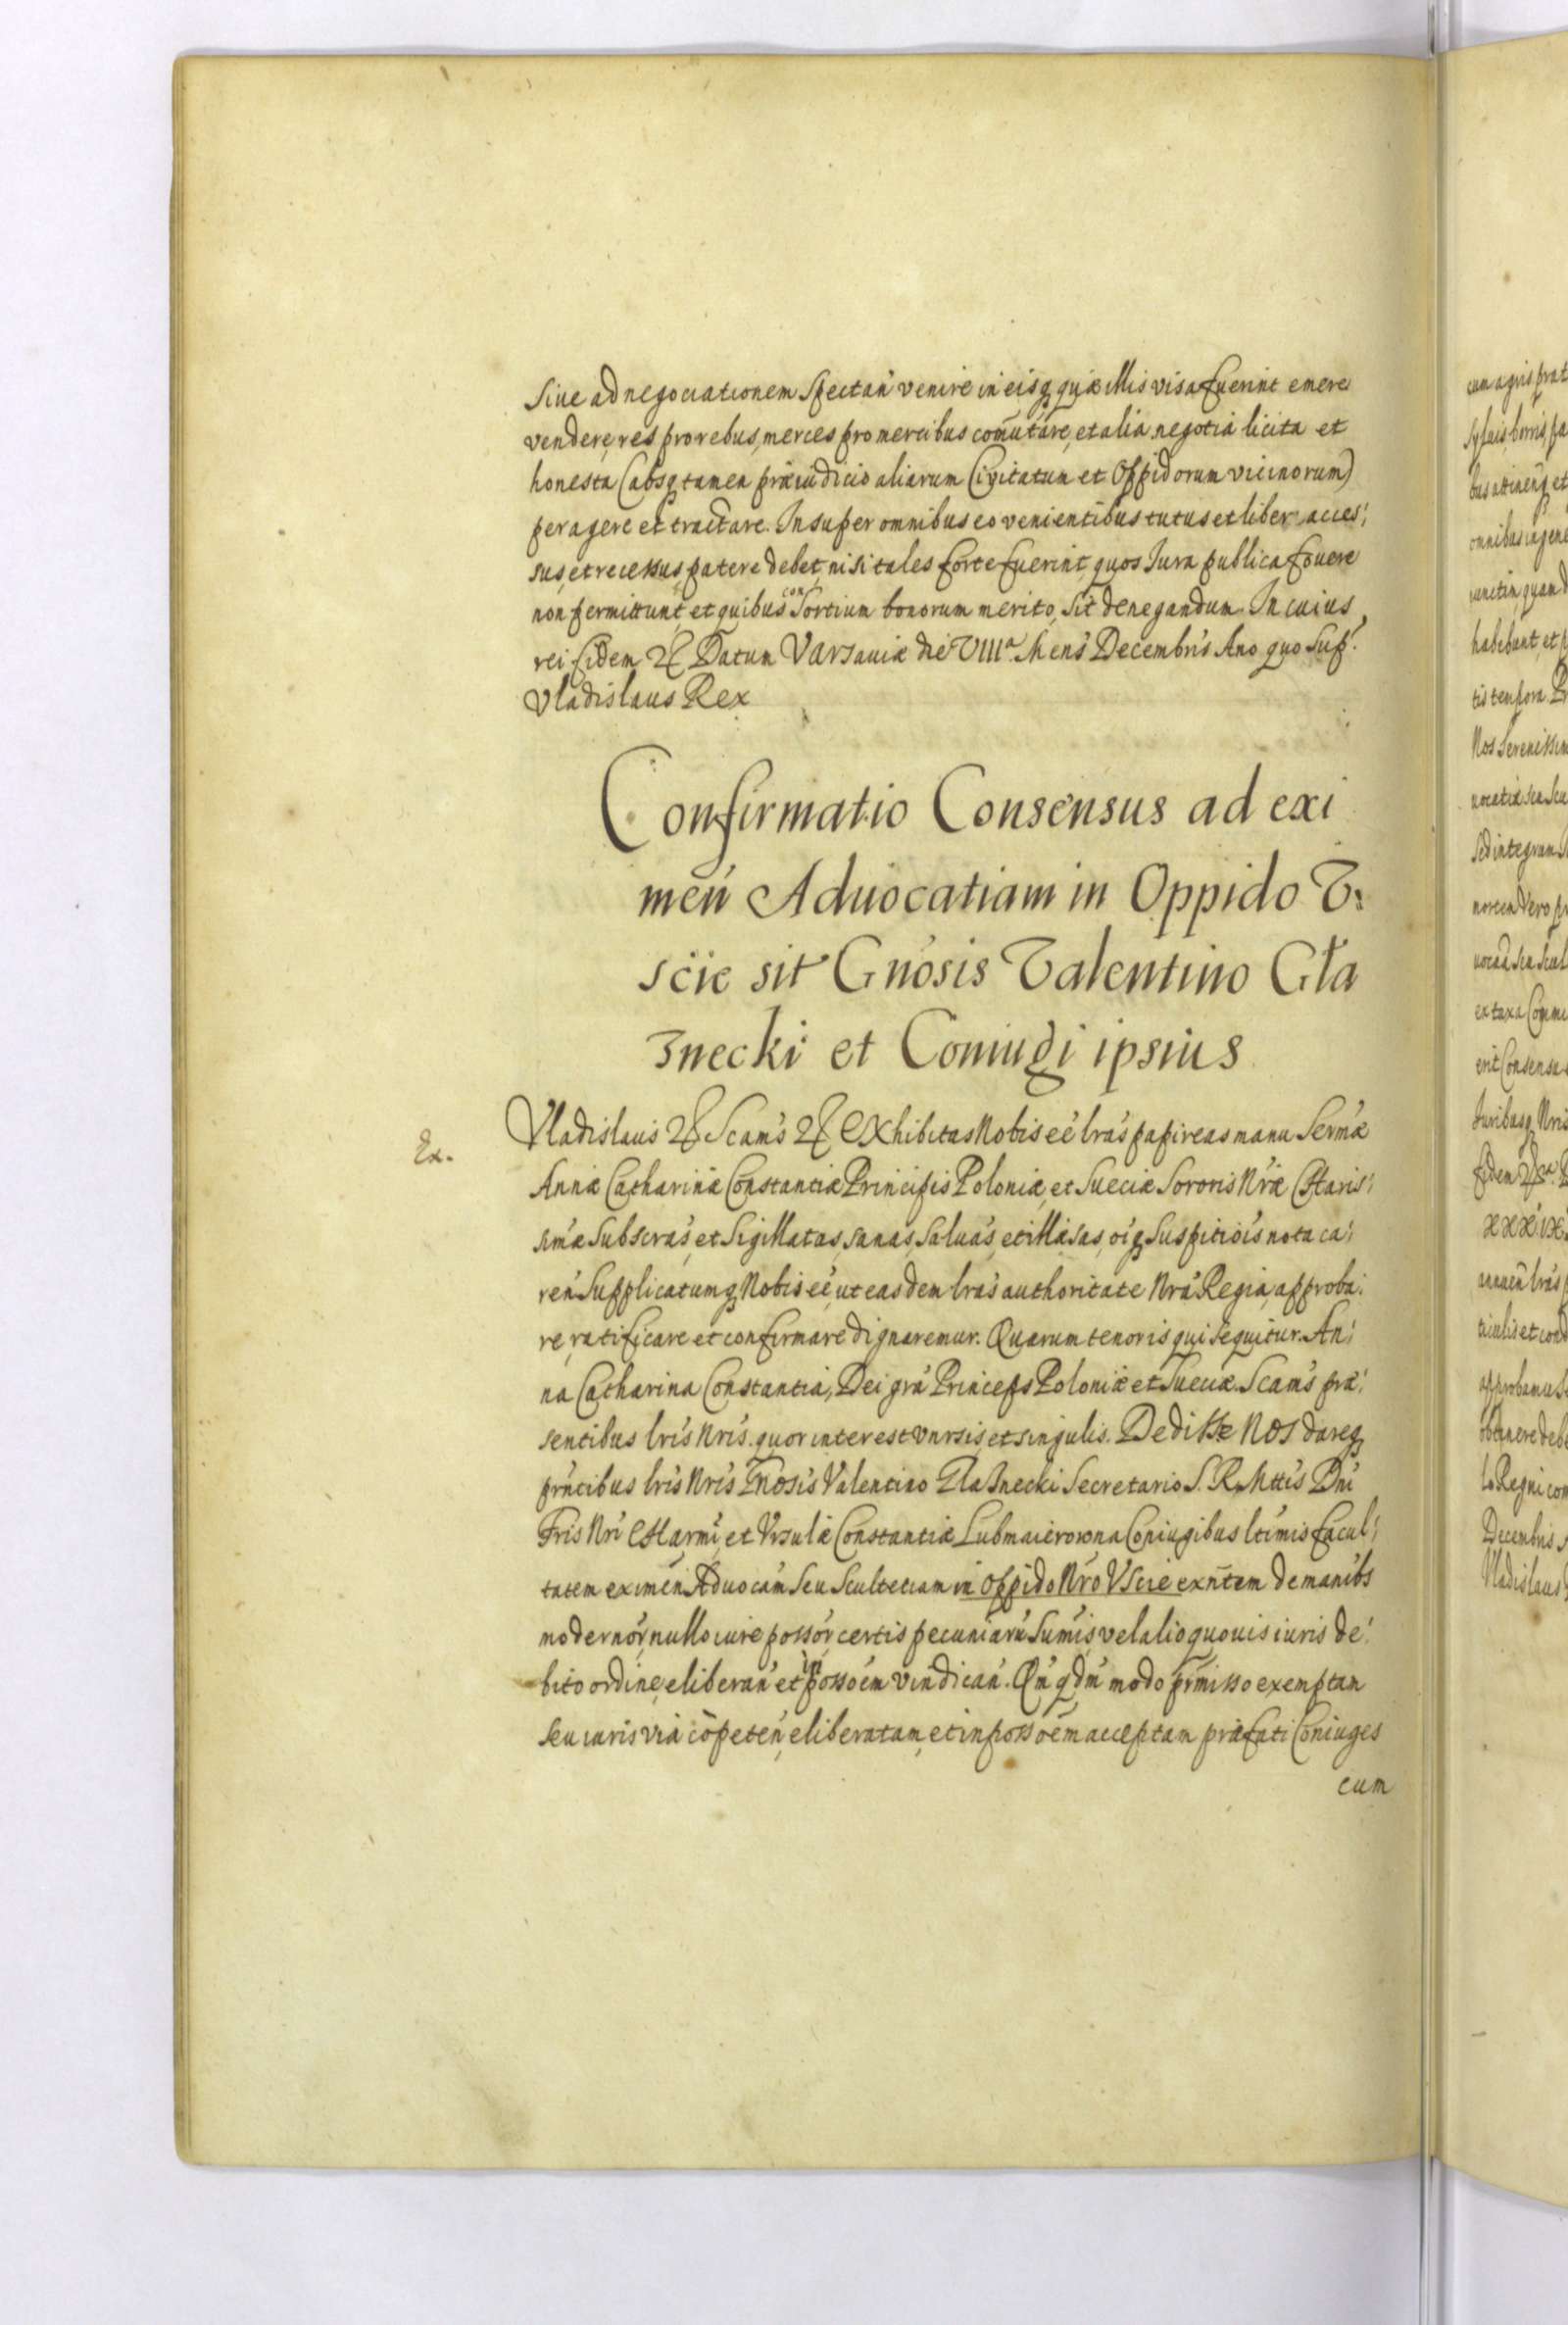 Siue ad negociationem Spectan̄ venire in eisq; quæ illis visa fuerint emere
vendere, res pro rebus, merces pro mercibus com̄utare, et alia negotia licita et
honesta (absq; tamen præiudicio aliarum Civitatum et Oppidorum vicinorum)
peragere et tractare. Insuper omnibus eo venientibus tutus et liber acces:
sus, et recessus patere debet, nisi tales forte fuerint, quos Iura publica fouere
non permittunt, et quibus consortium bonorum merito, sit denegandum. In cuius
rei fidem &c Datum Varsauiæ die VIIIa. Mens̄ Decembris Ano quo Sup̄.
Vladislaus Rex
Confirmatio Consensus ad exi
men̄ Aduocatiam in Oppido V:
scie sit Gnōsis Valentino Gła
znecki et Coniugi ipsius
Ex.
Vladislaus &c Scam̄s &c Exhibitas Nobis eē lrās papireas manu Serm̄æ
Annæ Catharinæ Constantiæ Principis Poloniæ, et Sueciæ Sororis Nr̄æ Charis:
sim̄æ Subscrās, et Sigillatas, sanas, saluas, et illæsas, oīq; Suspitiōis nota ca:
ren̄ Supplicatumq; Nobis eē, ut easdem lrās authoritate Nrā Regia, approba:
re, ratificare et confirmare dignaremur. Quarum tenor is qui sequitur. An:
na Catharina Constantia, Dei grā Princeps Poloniæ et Sueciæ. Scam̄s præ:
sentibus lrīs Nrīs. quor interest vnrsis, et singulis. Dedisse Nos dareq;
prn̄tibus lrīs Nrīs Gnōsis Valentino Głaznecki Secretario S. R. Mttis Dnī
Fris Nrī Charmī, et Vrsulæ Constantiæ Lubmaierowna Coniugibus ltīmis facul:
tatem eximen̄ Aduocam̄ seu Scultetiam in Oppido Nrō Vscie exn̄tem de manibs
modernor̄, nullo iure possor̄, certis pecuniarū Sum̄is, vel alio quouis iuris de:
bito ordine, eliberan̄ et in possoēm vindican̄. Qm̄ qdm̄ modo prm̄isso exemptam
seu iuris via cōpeten̄, eliberatam, et in possoēm acceptam præfati Coniuges
cum